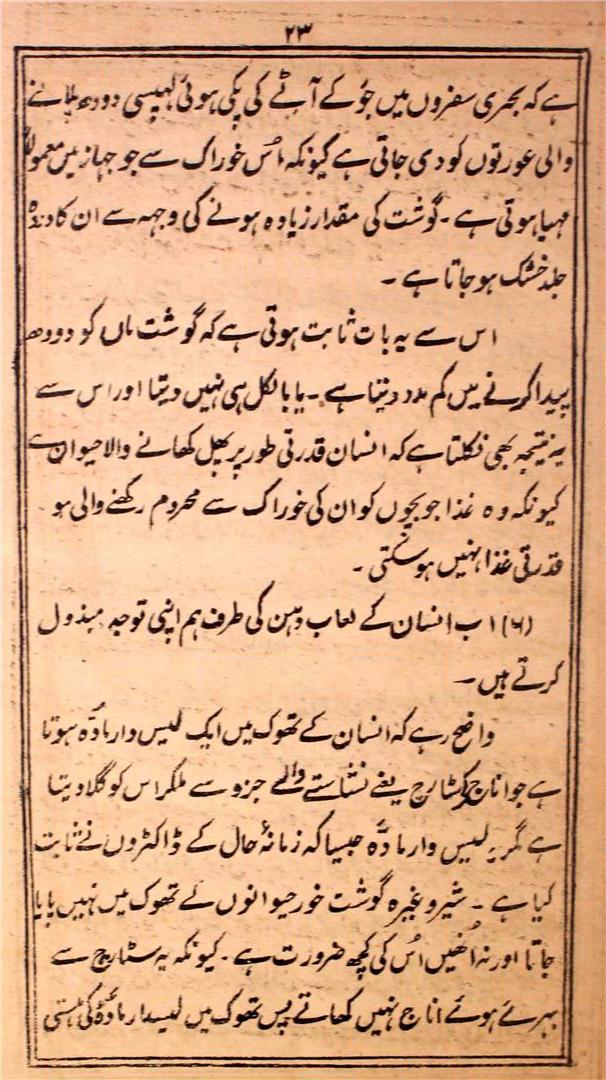 ۲۳
ہے کہ بحری سفروں میں جَو کے آٹے کی پکی ہوئی لہپسی دودھ پلانے
والی عورتوں کو دی جاتی ہے کیونکہ اُس خوراک سے جو جہاز میں معمولاً
مہیا ہوتی ہے ۔ گوشت کی مقدار زیادہ ہونے کی وجہہ سے ان کا دودھ
جلد خشک ہو جاتا ہے ۔
اس سے یہ بات ثابت ہوتی ہے کہ گوشت ماں کو دودھ
پیدا کرنے میں کم مدد دیتا ہے ۔ یا بالکل ہی نہیں دیتا اور اس سے
یہ نتیجہ بھی نکلتا ہے کہ انسان قدرتی طور پر پھل کھانے والا حیوان ہے
کیونکہ وہ غذا جو بچوں کو ان کی خوراک سے محروم رکھنے والی ہو
قدرتی غذا نہیں ہو سکتی ۔
(۶) اب انسان کے لعاب دہن کی طرف ہم اپنی توجہ مبذول
کرتے ہیں ۔
واضح رہے کہ انسان کے تھوک میں ایک لیس دار مادّہ ہوتا
ہے جو اناج کے سٹارچ یعنے نشاستے والے جزو سے ملکر اس کو گلا دیتا
ہے مگر یہ لیس دار مادّہ جیسا کہ زمانۂ حال کے ڈاکٹروں نے ثابت
کیا ہے ۔ شیر وغیرہ گوشت خور حیوانوں کے تھوک میں نہیں پایا
جاتا اور نہ اُنھیں اُس کی کچھ ضرورت ہے ۔ کیونکہ یہ سٹارچ سے
بہرے ہوئے اناج نہیں کھاتے پس تھوک میں لیسدار مادّہ کی ہستی